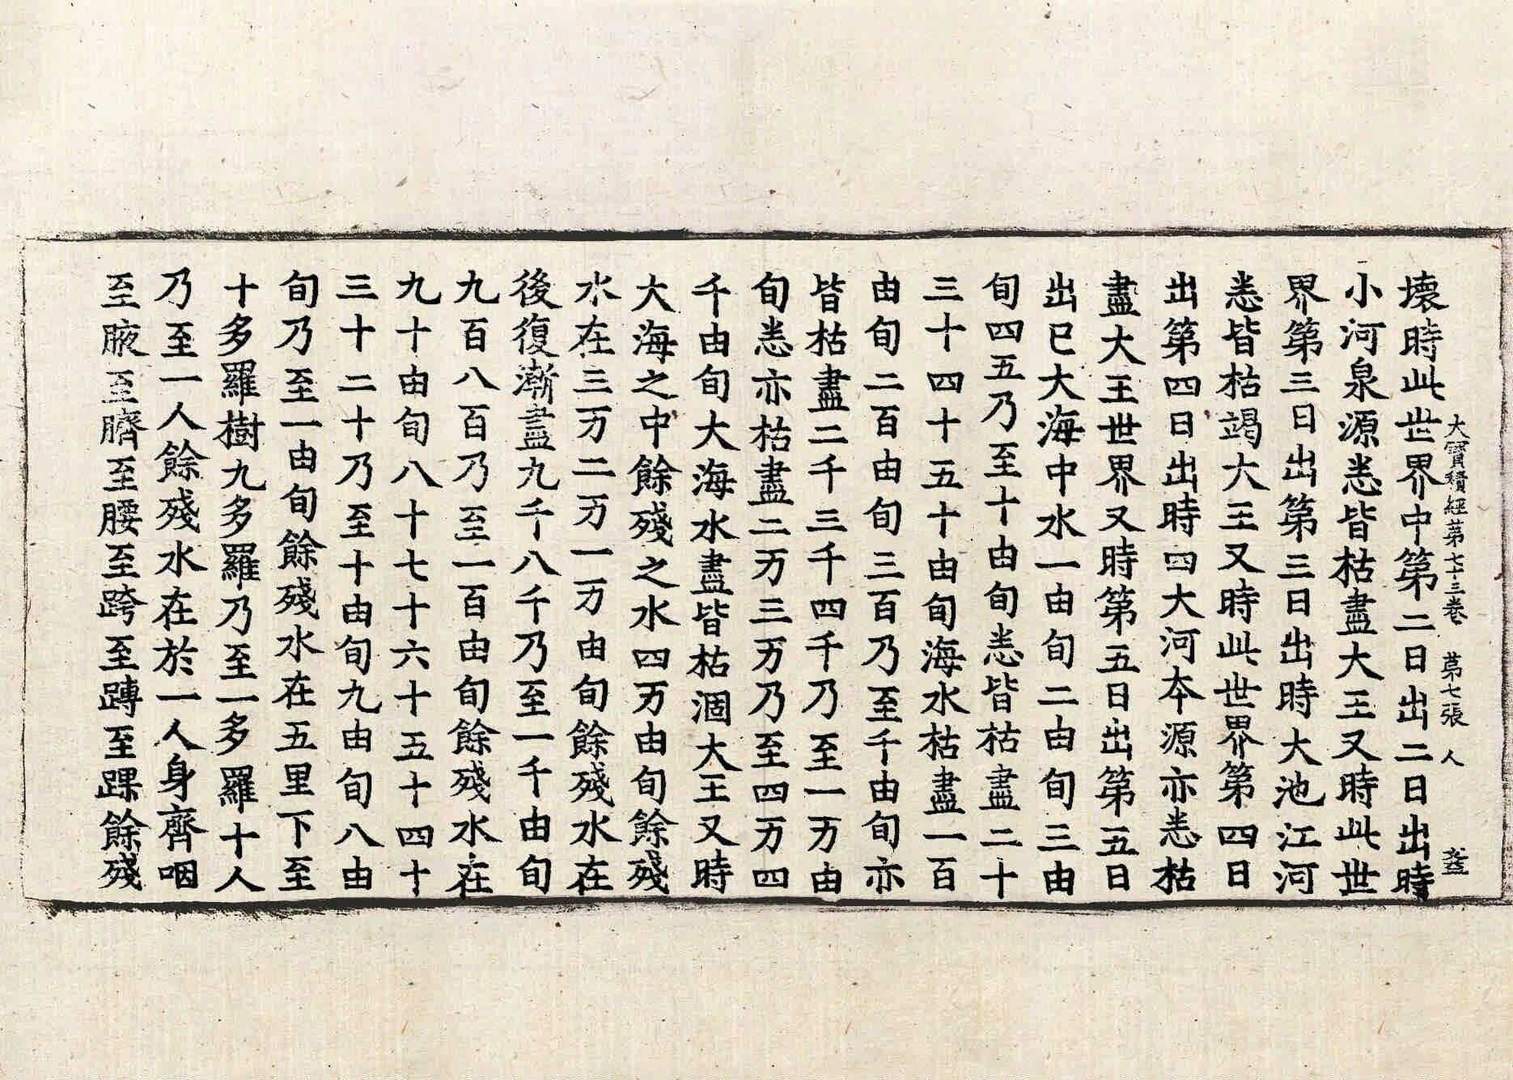 大寶積經第七十三卷 第七張 人
壞時此世界中第二日出二日出時
小河泉源悉皆枯盡大王又時此世
界第三日出第三日出時大池江河
悉皆枯竭大王又時此世界第四日
出第四日出時四大河本源亦悉枯
盡大王世界又時第五日出第五日
出已大海中水一由旬二由旬三由
旬四五乃至十由旬悉皆枯盡二十
三十四十五十由旬海水枯盡一百
由旬二百由旬三百乃至千由旬亦
皆枯盡二千三千四千乃至一万由
旬悉亦枯盡二万三万乃至四万四
千由旬大海水盡皆枯涸大王又時
大海之中餘殘之水四万由旬餘殘
水在三万二万一万由旬餘殘水在
後復漸盡九千八千乃至一千由旬
九百八百乃至一百由旬餘殘水在
九十由旬八十七十六十五十四十
三十二十乃至十由旬九由旬八由
旬乃至一由旬餘殘水在五里下至
十多羅樹九多羅乃至一多羅十人
乃至一人餘殘水在於一人身齊咽
至腋至臍至腰至跨至𨄔至踝餘殘